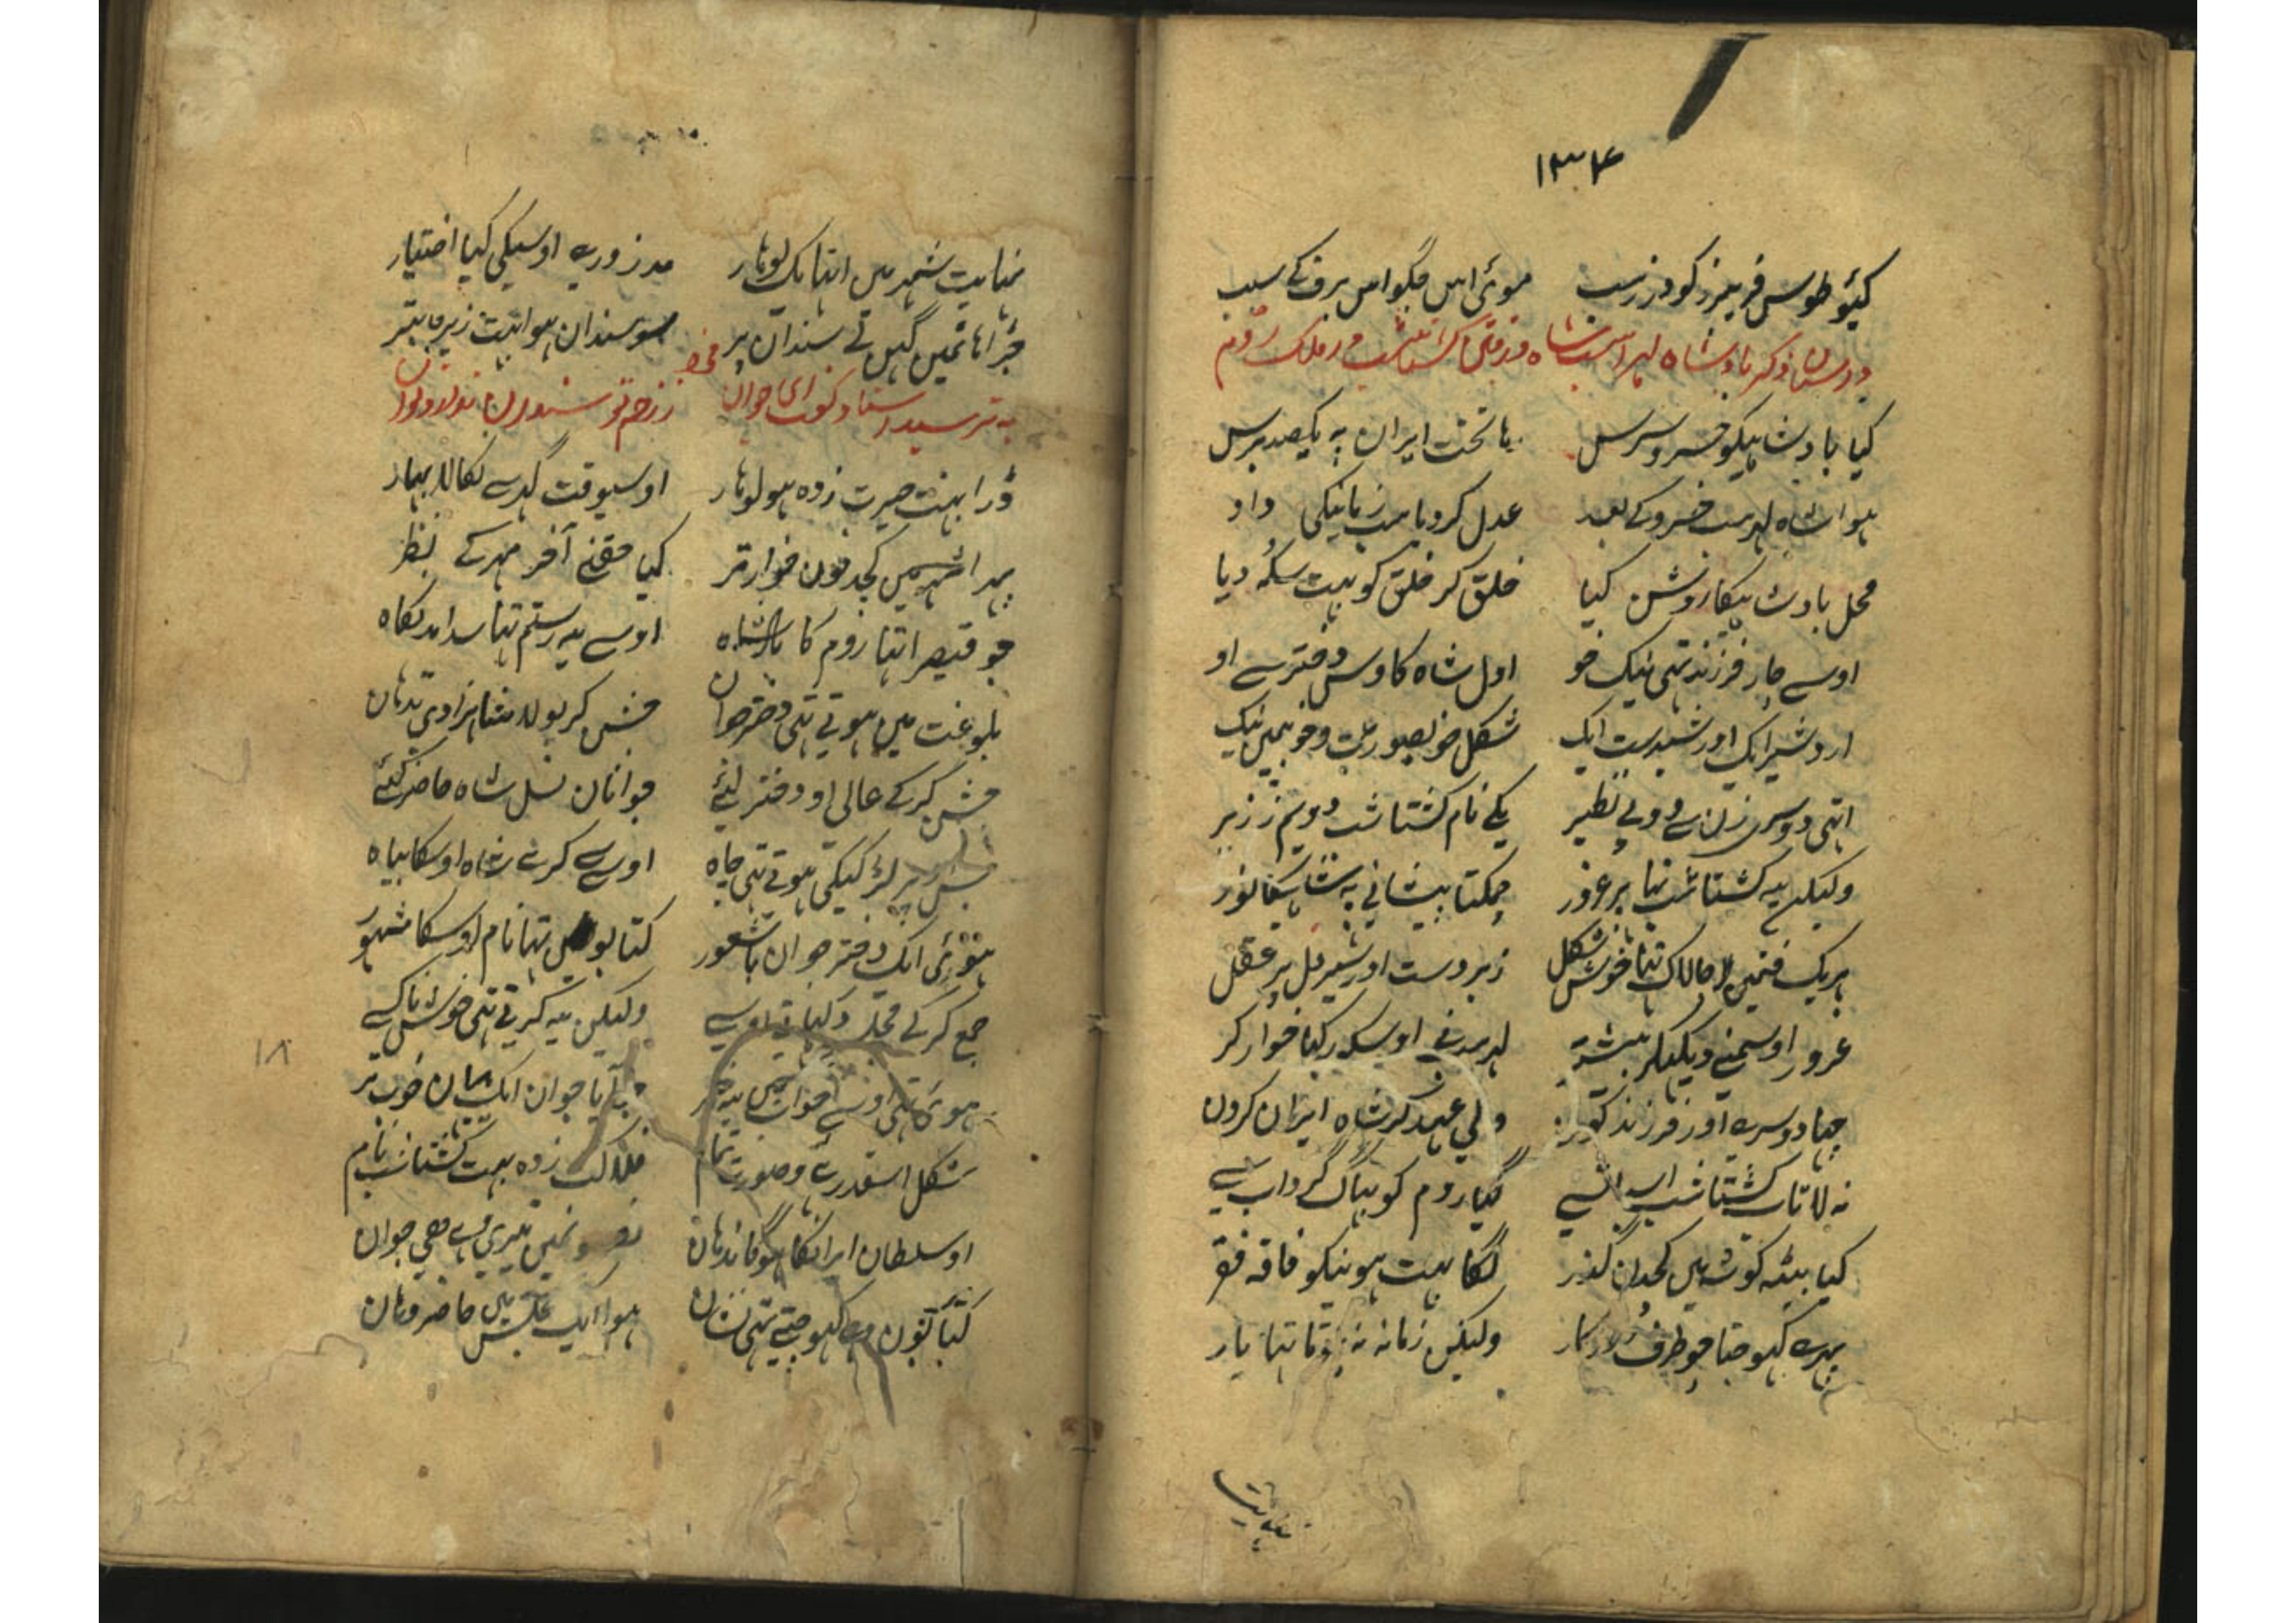 ۱۳۴
کیئو طوس فریبرز گودرز سب موئی اس جگو اس برف کے سبب
در بیان ذکر بادشاه لهراسب شاه و رفتن گشتاسب در ملک روم
کیا بادشاہیکو خسرو سرس با تخت ایران پہ یکصد برس
ہوا شاہ لہرسب خسرو کے بعد عدل کر دیا سب زمانیکی داد
محل بادشاہیکا روشن کیا خلق کر خلق کو بہت سکہ دیا
اوسے چار فرزند تہی نیک خو اول شاہ کاوس دختر سے او
اردشیر ایک اور شیدست ایک شکل خوبصورت و خو میں نیک
اتہی دوسری زن سے دو بے نظیر یکے نام گشتاشب دویم ز زریر
ولیکن یہ گشتاشب تہا پر غرور چمکتا پیشانی پہ شاہیکا نور
ہریک فنمیں چالاک تہا خوش شکل زبردست اور شیر دل پر عقل
غرور اوسمنے دیکہکر بیشتر لہرسب نے اوسکو رکہا خوار کر
چہا دوسرے اور فرزند کون ولی عہد کر شاہ ایران کرون
نہ لا تاب گشتاشب اس سے گیا روم کو بہاگ گرداب سے
کیا بیٹہ گوشہ میں کچدن گذر لگا بہت ہونیکو فاقہ فقر
پہرے کہوجتا چوطرف روزگار ولیکن زمانہ نہ ہوتا تہا یار
نہایت
نہایت شہر میں اتہا یک لوہار مزدوری اوسیکی کیا اختیار
جڑا ہاتمیں گہن تے سندان پر سو سندان ہوا بہت زیر و زبر
بہ ترسید استاد گفت ای جوان ز زخم تو سندان
ڈرا بہت حیرت زدہ ہو لوہار اوسیوقت گہر سے نکالا بہار
پہرا شہر میں کچہ دنون خوار تر کیا حقنے آخر مہر کے نظر
جو قیصر اتہا روم کا بادشاہ اوسے یہ رستم تہا سدا مد نگاہ
بلوغت میں ہوتے تہی دختر جوان جشن کر بولا شاہزادی تدہان
جشن کر کے عالی او دختر لئے جوانان نسل شاہ حاضر کئے
جس پر لڑکیکی ہوتے تہی چاہ اوسے کرتے شاہ اوسکا بیاہ
ہتوری ایک دختر جوان با شعور کتابون تہا نام اوسکا مشہور
جمع کر کے مجلس دکہاتے اوسے ولیکن یہ کرتے تہی خوش ناکسے
ہوئی تہی اوسے خواب میں یہ خبر آیا جوان ایک خوب تر
شکل اسقدر ہے و صورت تمام فلاکت زدہ بہت گشتاشب نام
او سلطان ایرانکا ہوگا ندہان تیری و ہے جوان
کتابون کہوجتے تہی نشان ہوا ایک مجلس میں حاضر وہان
۱۸